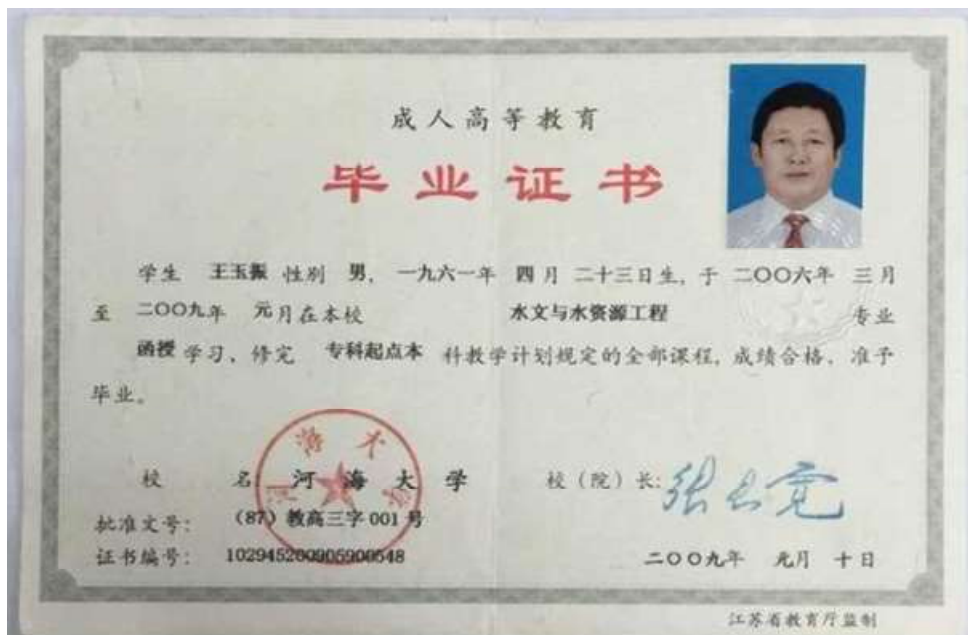 成人高等教育
毕业证书
学生 王玉振 性别 男, 一九六一年 四月 二十三日生, 于 二〇〇六年 三月
至 二〇〇九年 元月在本校 水文与水资源工程 专业
函授 学习、修完 专科起点本 科教学计划规定的全部课程, 成绩合格、准予
毕业。
校 名: 河海大学 校（院）长: 张长宽
批准文号: （87）教高三字 001 号
证书编号: 102945200905900548
二〇〇九年 元月 十日
河海大学
江苏省教育厅监制